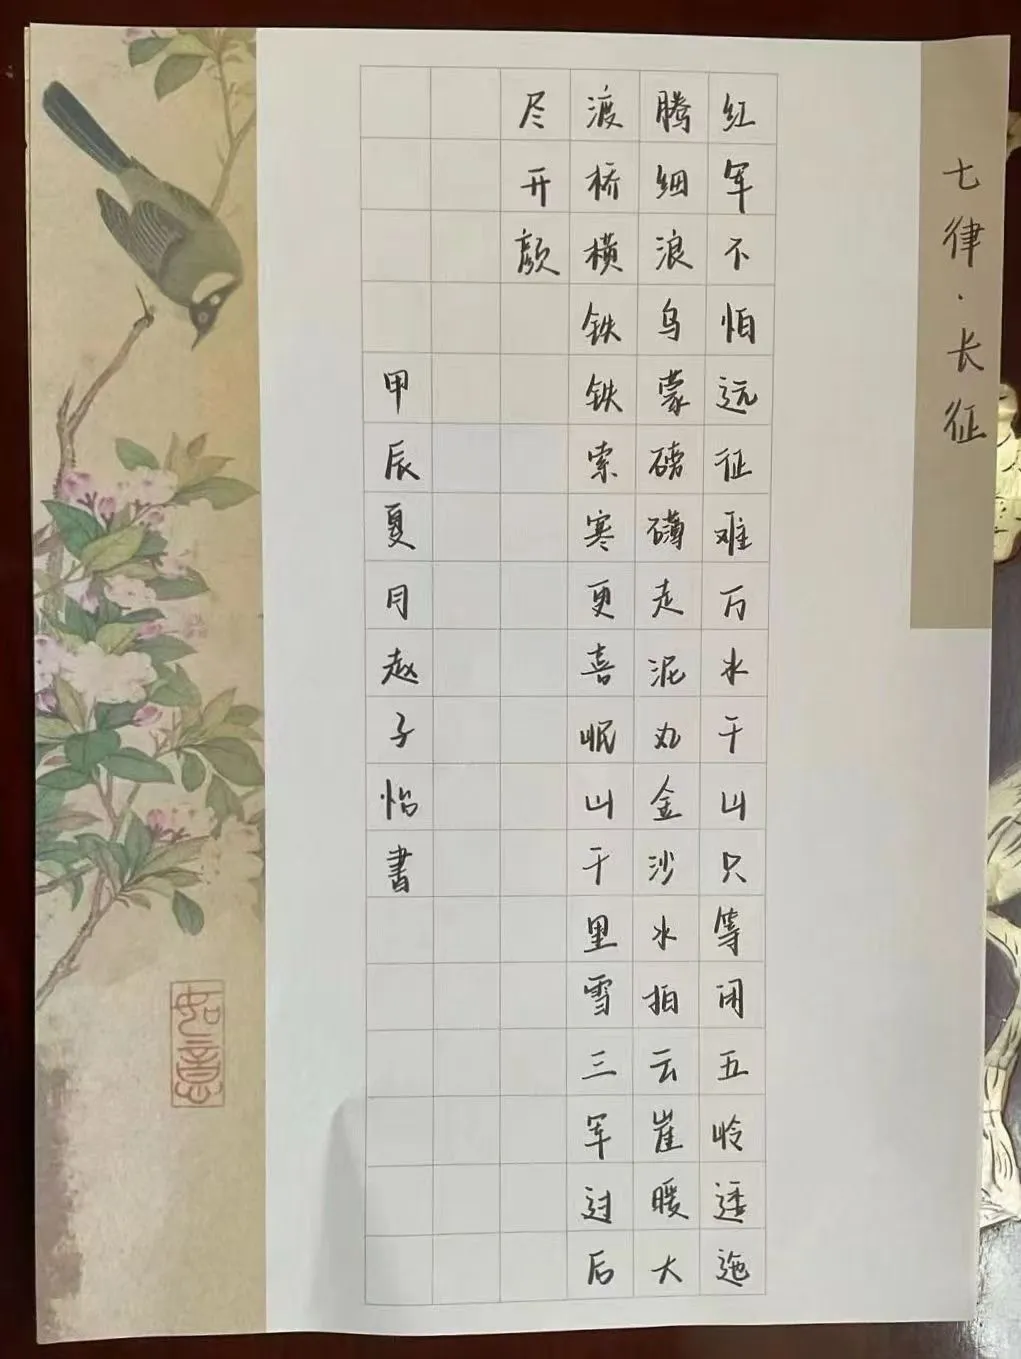 七律·长征
红军不怕远征难万水千山只等闲五岭逶迤
腾细浪乌蒙磅礴走泥丸金沙水拍云崖暖大
渡桥横铁铁索寒更喜岷山千里雪三军过后
尽开颜
甲辰夏月赵子怡書